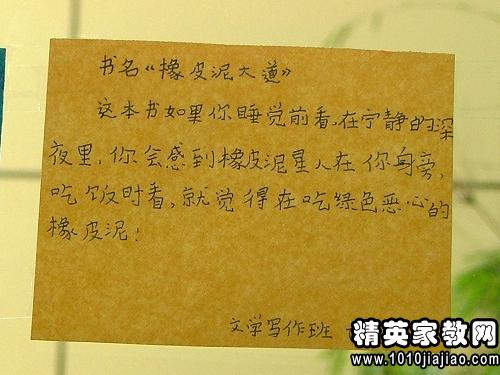 书名《橡皮泥大道》
这本书如果你睡觉前看,在宁静的深
夜里,你会感到橡皮泥星人在你身旁,
吃饭时看,就觉得在吃绿色恶心的
橡皮泥!
文学写作班
精英家教网
www.1010jiajiao.com